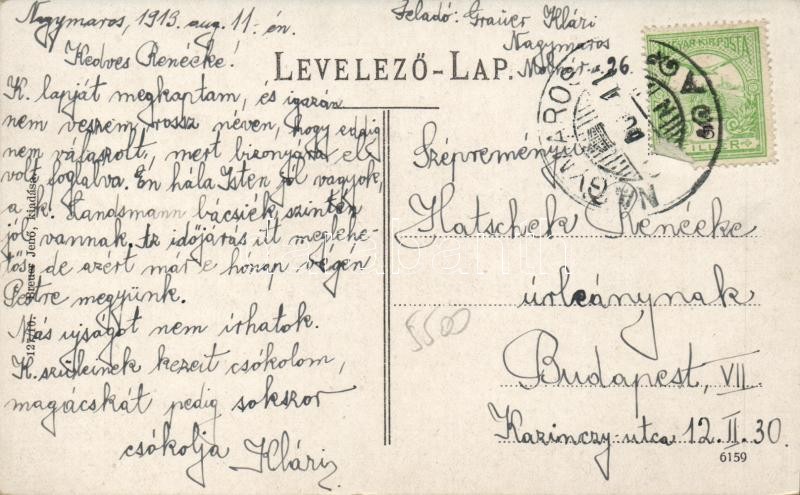 Nagymaros, 1913. aug. 11.-én.
Kedves Renéeke!
K. lapját megkaptam, és igazán
nem veszem rossz néven, hogy eddig
nem válaszolt, mert bizonyára el
volt foglalva. Én hála Isten jól vagyok,
a k. Landsmann bácsiék szintén
jól vannak. Az időjárás itt meglehe-
tős, de azért már e hónap végén
Pestre megyünk.
Más ujságot nem írhatok.
K. szüleinek kezeit csókolom,
magácskát pedig sokszor
csókolja Klári
Feladó: Grauer Klári
Nagymaros
Molnár u. 26.
LEVELEZŐ-LAP.
MAGYAR KIR. POSTA
FILLÉR
NAGYMAROS
Szépreményű
Hatschek Renéeke
úrleánynak
Budapest, VII
Kazinczy-utca 12. II. 30.
5500
6159
Breuer Jenő, kiadása